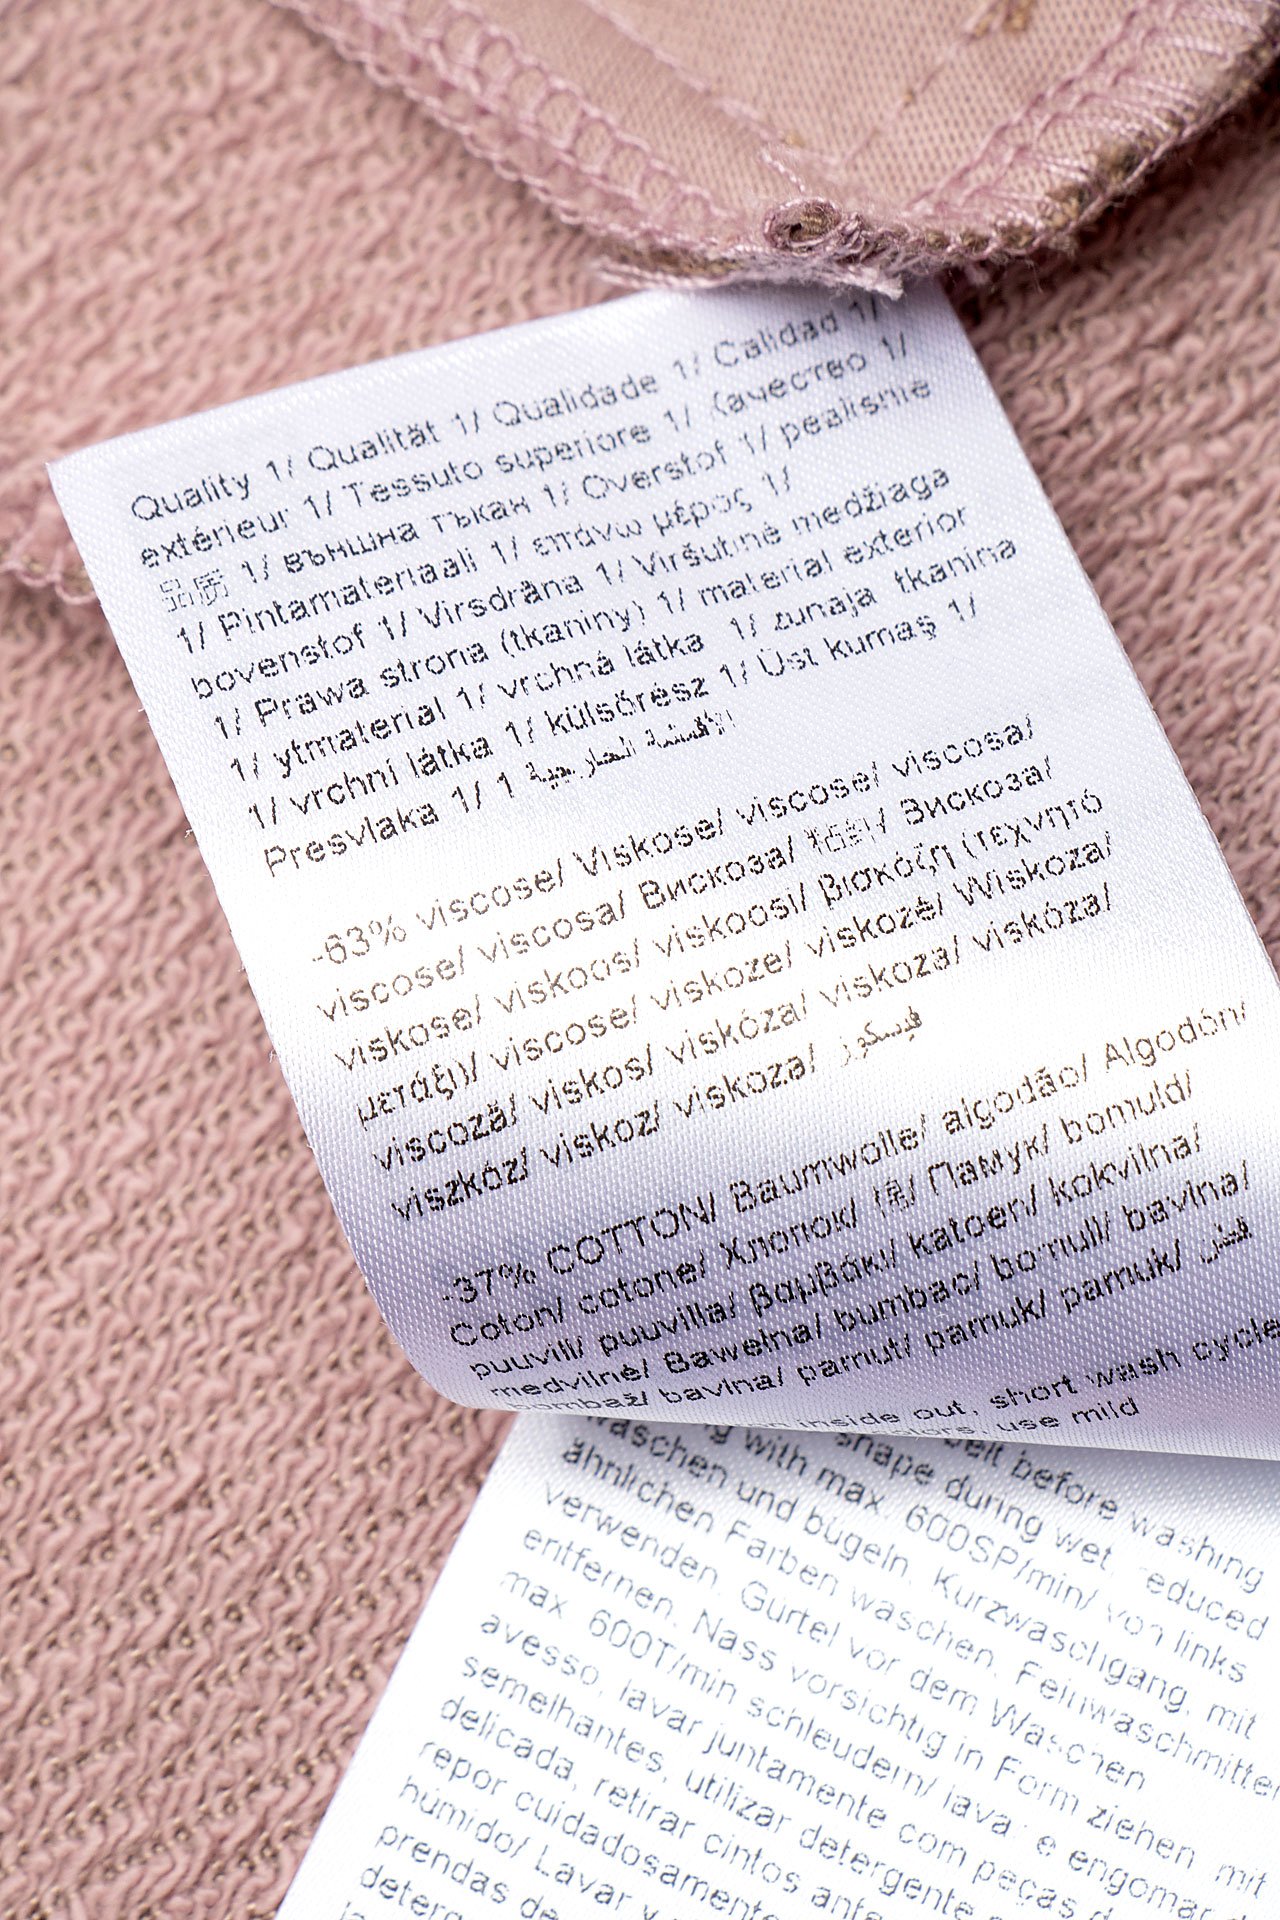 Quality 1/ Qualität 1/ Qualidade 1/ Calidad 1/
extérieur 1/ Tessuto superiore 1/ Качество 1/
品质 1/ външна тъкан 1/ Overstof 1/ pealisriie
1/ Pintamateriaali 1/ επάνω μέρος 1/
bovenstof 1/ Virsdrāna 1/ Viršutinė medžiaga
1/ Prawa strona (tkaniny) 1/ material exterior
1/ ytmaterial 1/ vrchná látka 1/ zunaja tkanina
1/ vrchní látka 1/ külsőrész 1/ Üst kumaş 1/
Presvlaka 1/ 1 الأقمشة الخارجية
-63% viscose/ Viskose/ viscose/ viscosa/
viscose/ viscosa/ Вискоза/ 粘纤/ Вискоза/
viskose/ viskoos/ viskoosi/ βισκόζη (τεχνητό
μετάξι)/ viscose/ viskoze/ viskozė/ Wiskoza/
viscoză/ viskos/ viskóza/ viskoza/ viskóza/
viszkóz/ viskoz/ viskoza/ فيسكوز
-37% COTTON/ Baumwolle/ algodão/ Algodón/
Coton/ cotone/ Хлопок/ 棉/ Памук/ bomuld/
puuvill/ puuvilla/ βαμβάκι/ katoen/ kokvilna/
medvilnė/ Bawełna/ bumbac/ bomull/ bavlna/
bombaž/ bavlna/ pamut/ pamuk/ pamuk/ قطن
inside out, short wash cycle
colors, use mild
belt before washing
shape during wet, reduced
with max. 600SP/min/ von links
waschen und bügeln, Kurzwaschgang, mit
ähnlichen Farben waschen, Feinwaschmittel
verwenden, Gürtel vor dem Waschen
entfernen, Nass vorsichtig in Form ziehen mit
max. 600T/min schleudern/ lavar e engomar
avesso, lavar juntamente com peças
semelhantes, utilizar detergente
delicada, retirar cintos
repor cuidadosamente
húmido/ Lavar y
prendas de